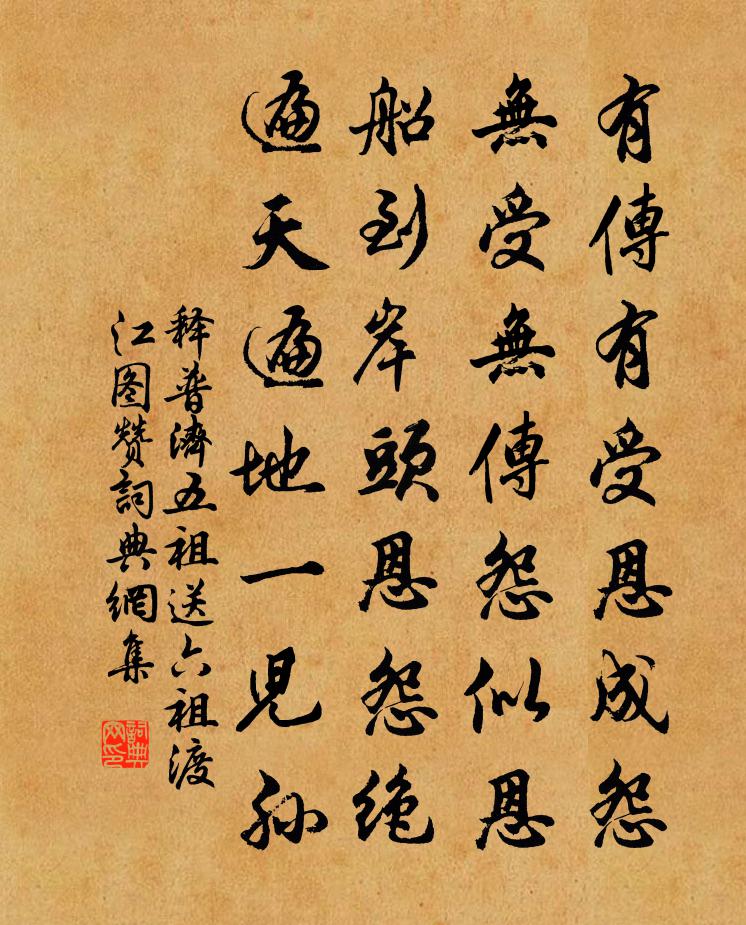 有傳有受恩成怨
無受無傳怨似恩
船到岸頭恩怨绝
遍天遍地一兒孙
释普濟五祖送六祖渡
江图赞詞典網集
詞典网印